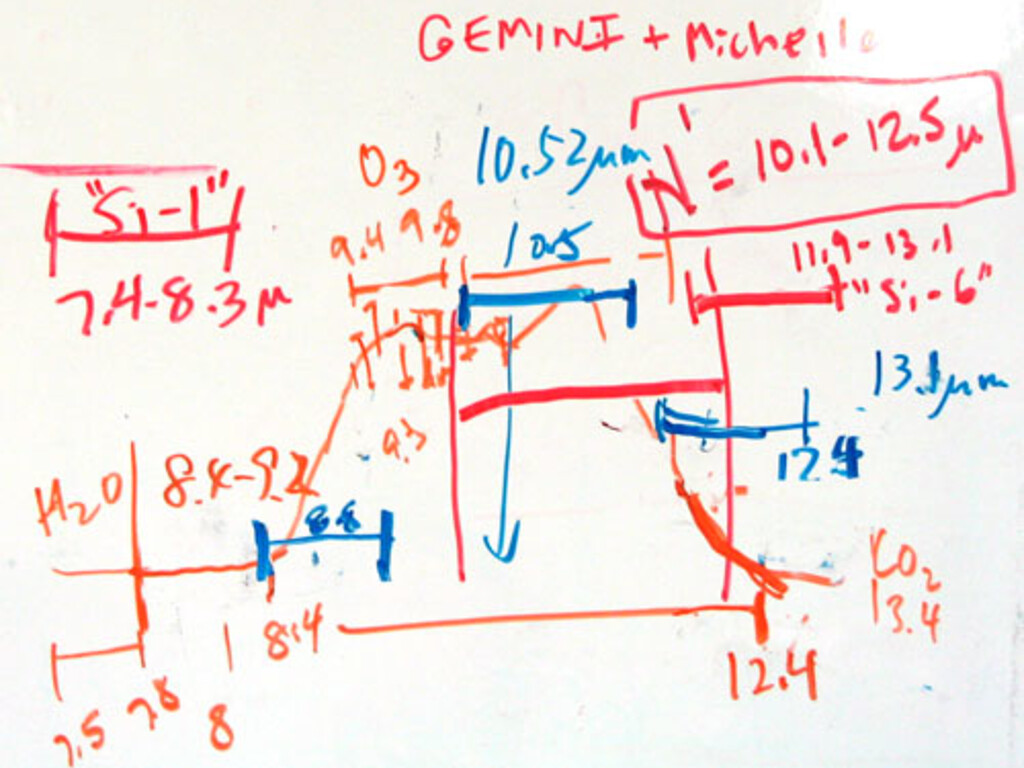 GEMINI + Michelle
N' = 10.1 - 12.5 μ
10.52 μm
O3
"Si-1"
7.4-8.3 μ
9.4 9.8
10.5
11.9-13.1
"Si-6"
13.1 μm
9.3
12.4
H2O
8.4-9.2
8.8
CO2
13.4
8.4
12.4
7.5 7.8 8